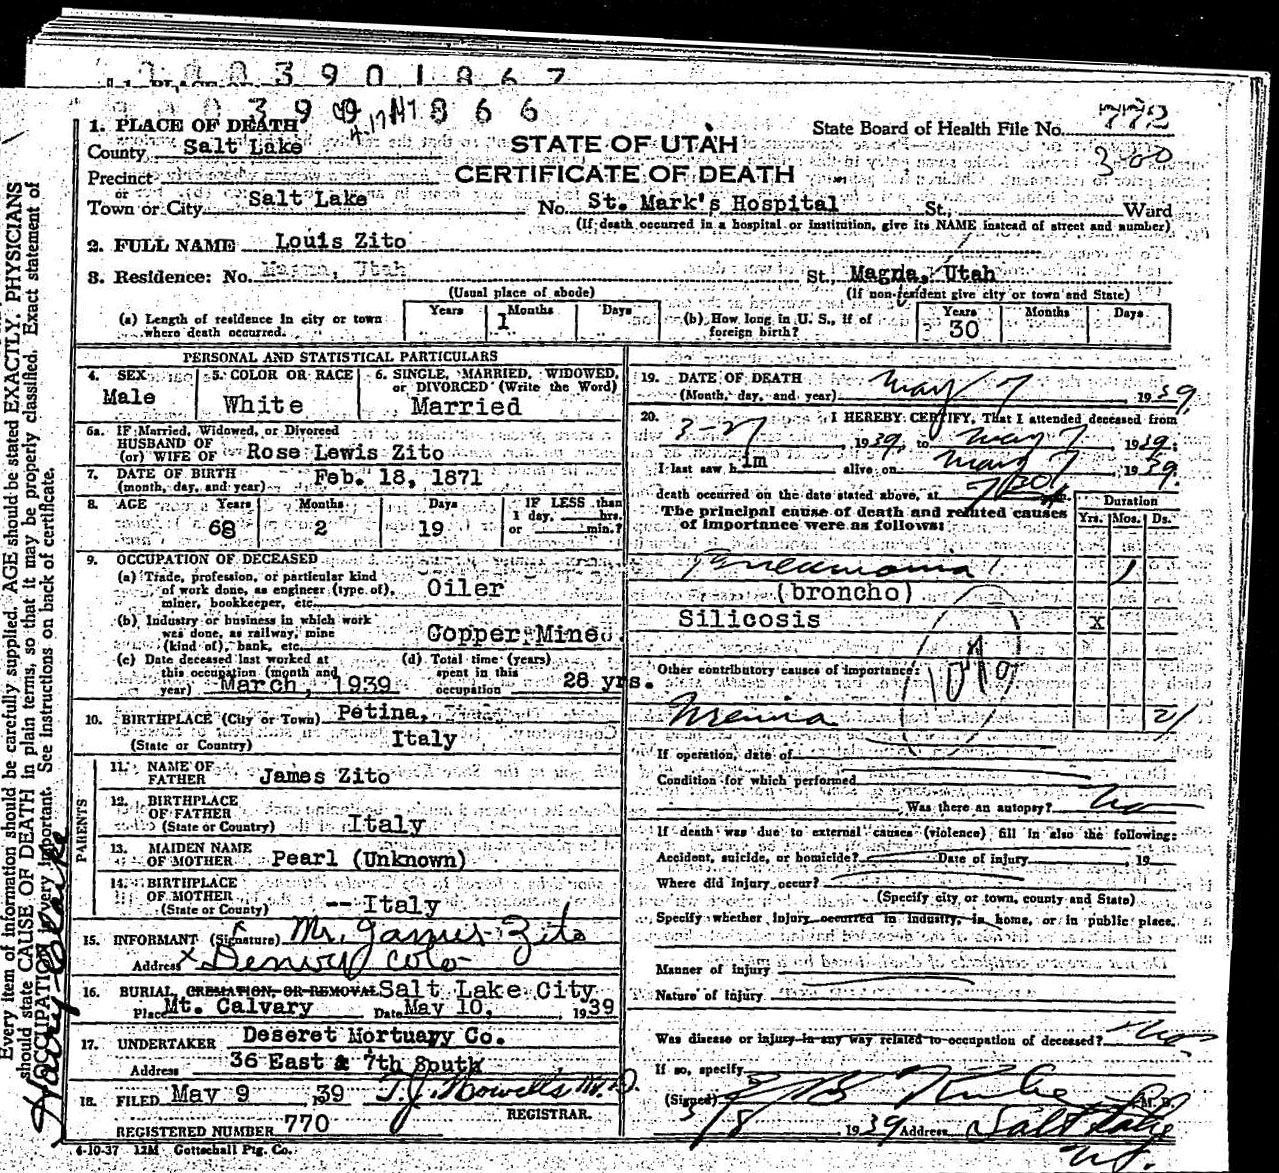 3 9 0 1 8 6 7
3 9 0 1 8 6 6
1. PLACE OF DEATH
County Salt Lake
STATE OF UTAH
CERTIFICATE OF DEATH
State Board of Health File No. 772
300
Precinct
or
Town or City Salt Lake No. St. Mark's Hospital St., Ward
(If death occurred in a hospital or institution, give its NAME instead of street and number)
2. FULL NAME Louis Zito
3. Residence: No. Magna, Utah St., Magna, Utah
(Usual place of abode) (If non-resident give city or town and State)
(a) Length of residence in city or town where death occurred. Years Months 1 Days
(b) How long in U. S., if of foreign birth? Years 30 Months Days
PERSONAL AND STATISTICAL PARTICULARS
4. SEX Male
5. COLOR OR RACE White
6. SINGLE, MARRIED, WIDOWED, or DIVORCED (Write the Word) Married
6a. If Married, Widowed, or Divorced
HUSBAND OF
(or) WIFE OF Rose Lewis Zito
7. DATE OF BIRTH
(month, day, and year) Feb. 18, 1871
8. AGE Years 68 Months 2 Days 19 IF LESS than 1 day, hrs. or min.?
9. OCCUPATION OF DECEASED
(a) Trade, profession, or particular kind of work done, as engineer (type of), miner, bookkeeper, etc. Oiler
(b) Industry or business in which work was done, as railway, mine (kind of), bank, etc. Copper Mine.
(c) Date deceased last worked at this occupation (month and year) March, 1939
(d) Total time (years) spent in this occupation 28 yrs.
10. BIRTHPLACE (City or Town) Petina,
(State or Country) Italy
PARENTS
11. NAME OF FATHER James Zito
12. BIRTHPLACE OF FATHER
(State or Country) Italy
13. MAIDEN NAME OF MOTHER Pearl (Unknown)
14. BIRTHPLACE OF MOTHER
(State or County) -- Italy
15. INFORMANT (Signature) Mr. James Zito
Address X Denver Colo
16. BURIAL, CREMATION, OR REMOVAL Salt Lake City
Place Mt. Calvary Date May 10, 1939
17. UNDERTAKER Deseret Mortuary Co.
Address 36 East & 7th South
18. FILED May 9, 39 T. J. Howells M.D.
REGISTRAR.
REGISTERED NUMBER 770
4-10-37 12M Gottschall Ptg. Co.
19. DATE OF DEATH
(Month, day, and year) May 7 1939.
20. I HEREBY CERTIFY, That I attended deceased from
3-27, 1939, to May 7 1939;
I last saw him alive on May 7, 1939.
death occurred on the date stated above, at
The principal cause of death and related causes of importance were as follows:
Duration
Yrs. Mos. Ds.
Pneumonia 1
(broncho)
Silicosis x
Other contributory causes of importance:
107a
Uremia 21
If operation, date of
Condition for which performed
Was there an autopsy? No
If death was due to external causes (violence) fill in also the following:
Accident, suicide, or homicide? Date of injury , 19
Where did injury occur?
(Specify city or town, county and State)
Specify whether injury occurred in industry, in home, or in public place.
Manner of injury
Nature of Injury
Was disease or injury in any way related to occupation of deceased? No.
If so, specify
(Signed) M. D.
5/8 1939 Address Salt Lake
Ut.
Every item of information should be carefully supplied. AGE should be stated EXACTLY. PHYSICIANS
should state CAUSE OF DEATH in plain terms, so that it may be properly classified. Exact statement of
OCCUPATION is very important. See instructions on back of certificate.